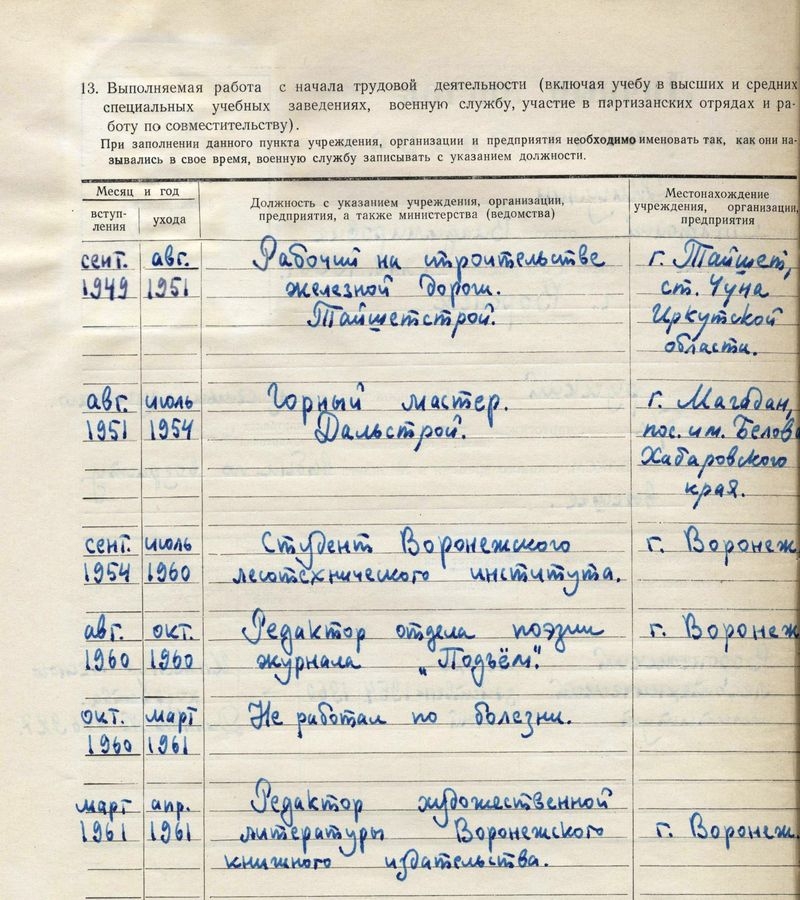 13. Выполняемая работа с начала трудовой деятельности (включая учебу в высших и средних
специальных учебных заведениях, военную службу, участие в партизанских отрядах и ра-
боту по совместительству).
При заполнении данного пункта учреждения, организации и предприятия необходимо именовать так, как они на-
зывались в свое время, военную службу записывать с указанием должности.
Месяц и год
вступ-
ления
ухода
Должность с указанием учреждения, организации,
предприятия, а также министерства (ведомства)
Местонахождение
учреждения, организации,
предприятия
сент. авг. Рабочий на строительстве г. Тайшет,
1949 1951 железной дороги. ст. Чуна
Тайшетстрой. Иркутской
области.
авг. июль Горный мастер. г. Магадан,
1951 1954 Дальстрой. пос. им. Белова
Хабаровского
края.
сент. июль Студент Воронежского г. Воронеж
1954 1960 лесотехнического института.
авг. окт. Редактор отдела поэзии г. Воронеж
1960 1960 журнала „Подъём".
окт. март Не работал по болезни.
1960 1961
март апр. Редактор художественной
1961 1961 литературы Воронежского г. Воронеж.
книжного издательства.